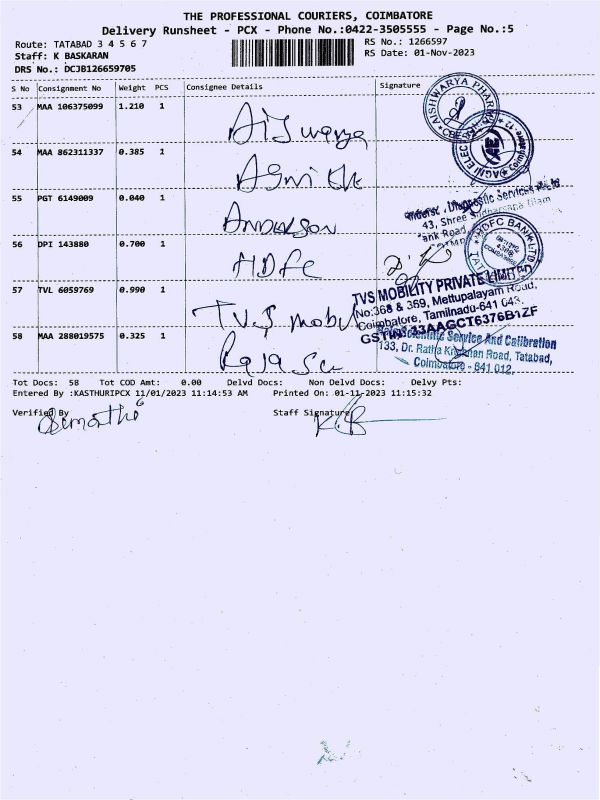 THE PROFESSIONAL COURIERS, COIMBATORE
Delivery Runsheet - PCX - Phone No.:0422-3505555 - Page No.:5
Route: TATABAD 3 4 5 6 7
RS No.: 1266597
Staff: K BASKARAN
RS Date: 01-Nov-2023
DRS No.: DCJB126659705
S No Consignment No Weight PCS Consignee Details Signature
53 MAA 106375099 1.210 1
Aiswarya
AISHWARYA PHARMA
54 MAA 862311337 0.385 1
Agni Ele
AGNI ELEC
Coimbatore-12
55 PGT 6149009 0.040 1
Anderson
Diagnostic Services
43, Shree
56 DPI 143880 0.700 1
HDFC
HDFC BANK LTD
57 TVL 6059769 0.990 1
TVS Mobil
TVS MOBILITY PRIVATE LIMITED
No:368 & 369, Mettupalayam Road,
Coimbatore, Tamilnadu-641 043.
GSTIN: 33AAGCT6376B1ZF
58 MAA 288019575 0.325 1
Raja Sc
Scientific Service And Calibration
133, Dr. Ratha Krishnan Road, Tatabad,
Coimbatore - 641 012.
Tot Docs: 58 Tot COD Amt: 0.00 Delvd Docs: Non Delvd Docs: Delvy Pts:
Entered By :KASTHURIPCX 11/01/2023 11:14:53 AM Printed On: 01-11-2023 11:15:32
Verified By
Staff Signature